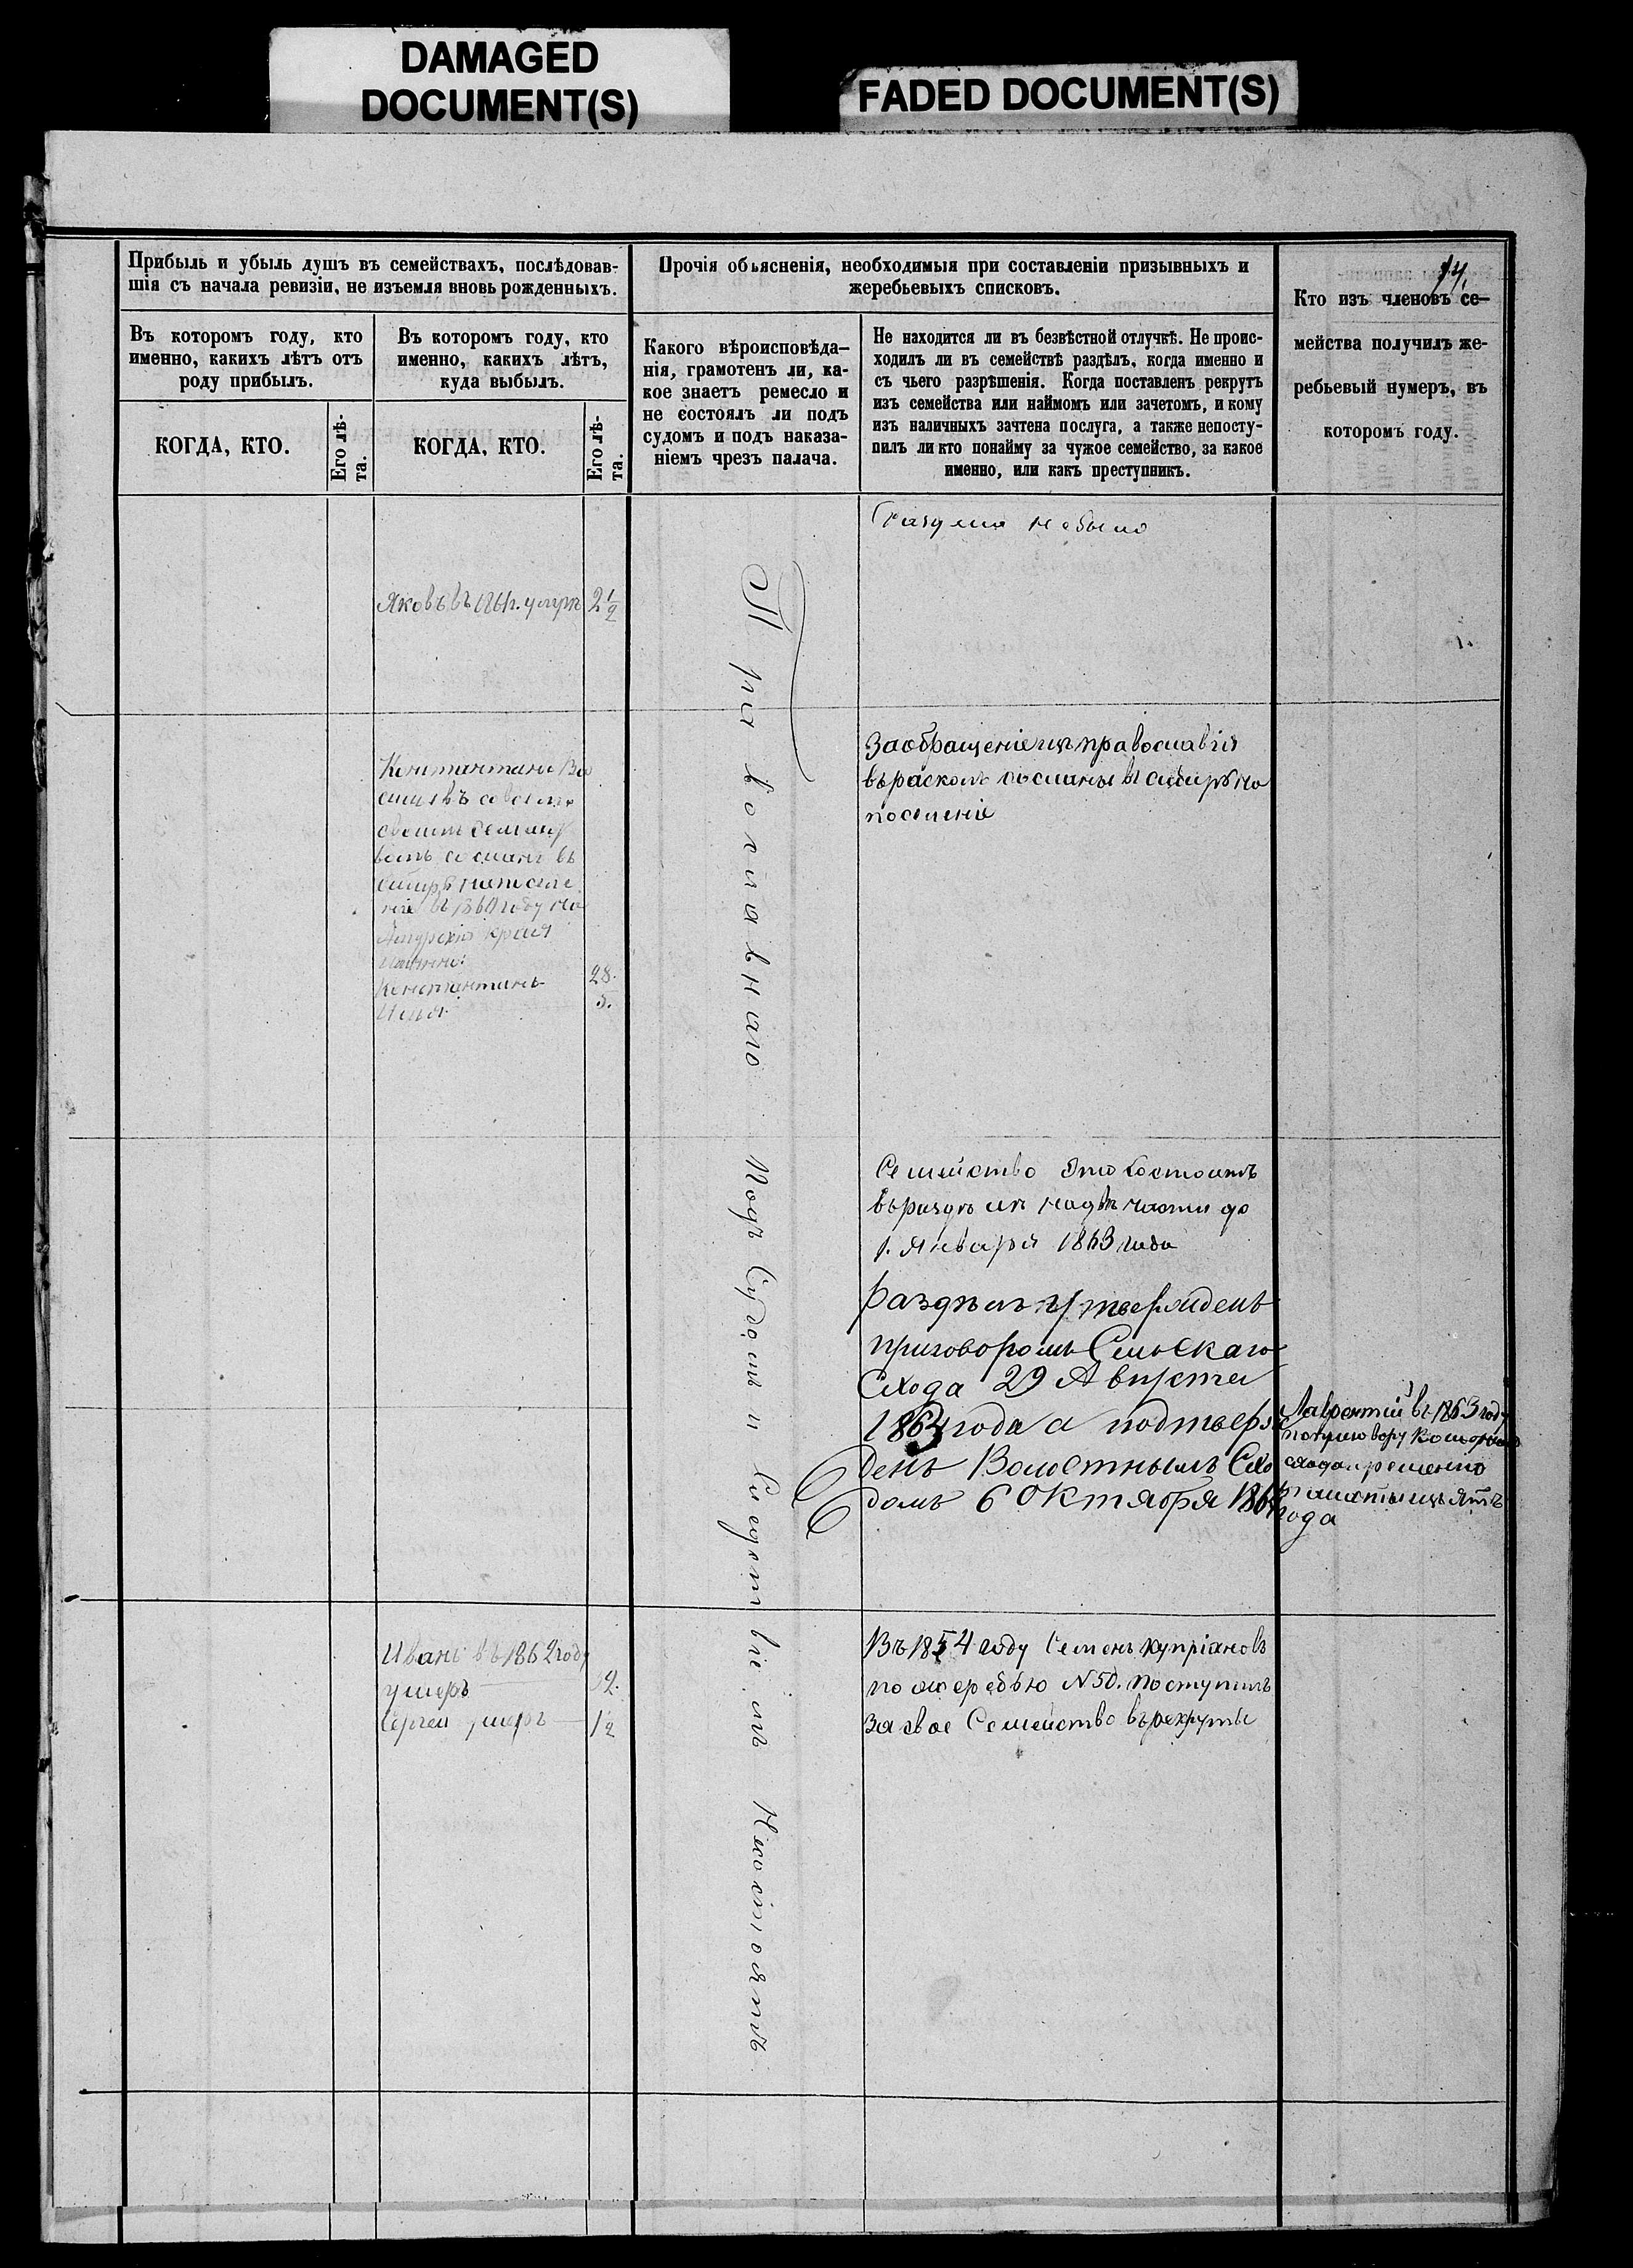 DAMAGED
DOCUMENT(S)
FADED DOCUMENT(S)
14.
Прибыль и убыль душъ въ семействахъ, послѣдовав-
шія съ начала ревизіи, не изъемля вновь рожденныхъ.
Въ которомъ году, кто
именно, какихъ лѣтъ отъ
роду прибылъ.
КОГДА, КТО.
Его лѣ-
та.
Въ которомъ году, кто
именно, какихъ лѣтъ,
куда выбылъ.
КОГДА, КТО.
Его лѣ-
та.
Прочія объясненія, необходимыя при составленіи призывныхъ и
жеребьевыхъ списковъ.
Какого вѣроисповѣда-
нія, грамотенъ ли, ка-
кое знаетъ ремесло и
не состоялъ ли подъ
судомъ и подъ наказа-
ніемъ чрезъ палача.
Не находится ли въ безвѣстной отлучкѣ. Не проис-
ходилъ ли въ семействѣ раздѣлъ, когда именно и
съ чьего разрѣшенія. Когда поставленъ рекрутъ
изъ семейства или наймомъ или зачетомъ, и кому
изъ наличныхъ зачтена послуга, а также непосту-
пилъ ли кто понайму за чужое семейство, за какое
именно, или какъ преступникъ.
Кто изъ членовъ се-
мейства получилъ же-
ребьевый нумеръ, въ
которомъ году.
Раздела небыло
Яковъ въ 1861 г. умеръ 2 1/2
Православнаго Подъ Судомъ и Следствіемъ Несостоятъ
Заобращеніе изъ православія
въ расколъ посланы въ сибирь на
поселеніе
Константинъ Ва
сильевъ со всемъ
своимъ семей
вомъ сосланъ въ
сибирь на поселе
ніе въ 1860 году на
Амурскій край
Константинъ 28.
Илья 5.
Семейство это состоитъ
въ разделе на две части до
1. Января 1863 года
Раздѣлъ утвержденъ
приговоромъ Сельскаго
Схода 29 Августа
1864 года а подтверж
денъ Волостнымъ Схо
домъ 6 Октября 1864
года
Лаврентій въ 1863 году
по приговору
схода
Иванъ въ 1862 году
умеръ
Сергей умеръ 1/2
Въ 1854 году Семенъ купріановъ
по жеребью N 50. поступилъ
За свое Семейство въ рекруты